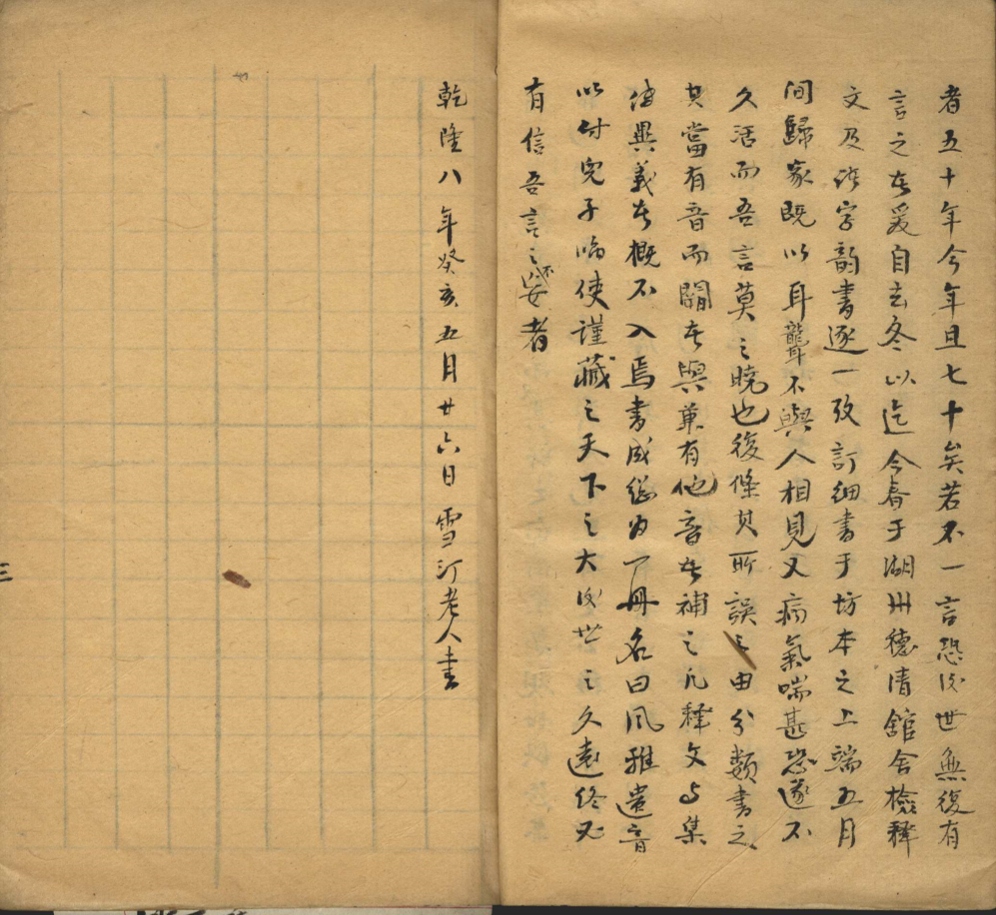 者五十年今年且七十矣若不一言恐後世無復有
言之者爰自去冬以迄今春于湖州德清館舍檢釋
文及諸字韵書逐一攷訂細書于坊本之上端五月
间歸家既以耳聾不與人相見又病氣喘甚恐遂不
久活而吾言莫之曉也復條其所誤之由分類書之
其當有音而闕者與兼有他音者補之凡釋文与集
傳異義者概不入焉書成縂为一冊名曰風雅遺音
以付兒子使謹藏之天下之大後世之久遠終必
有信吾言之不妄者
乾隆八年癸亥五月廿六日雪汀老人書
三